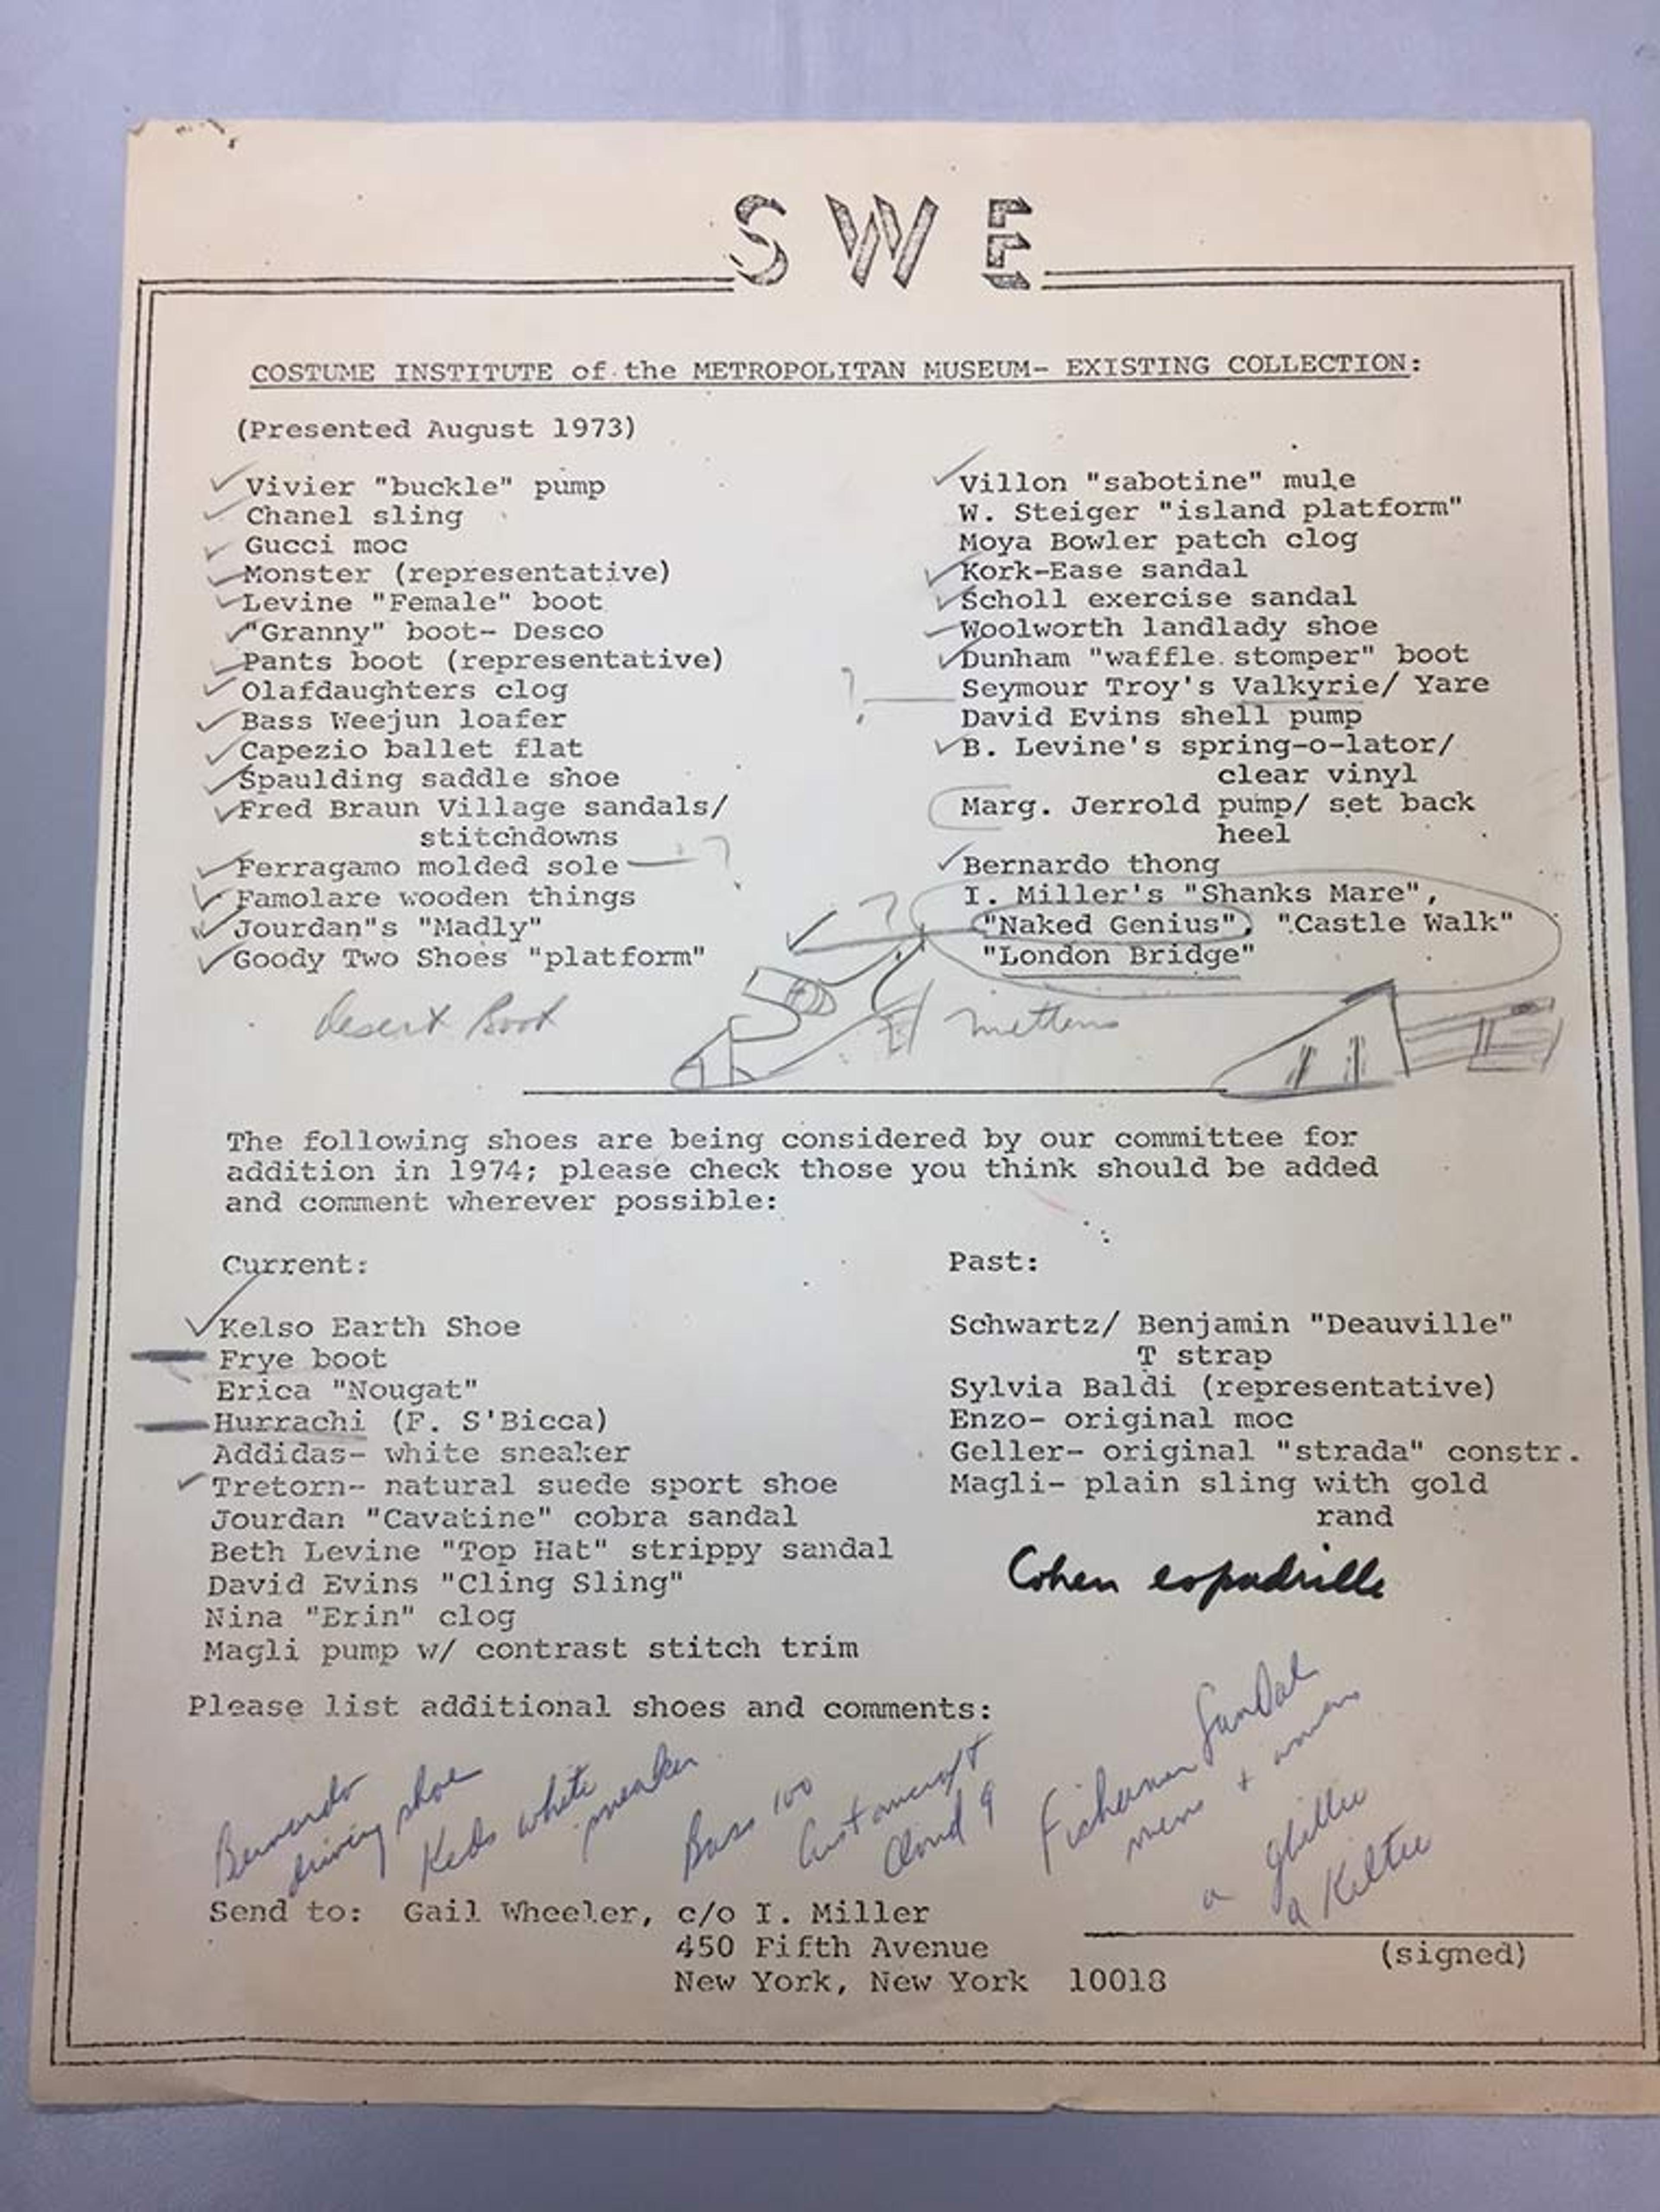 SWE
COSTUME INSTITUTE of the METROPOLITAN MUSEUM- EXISTING COLLECTION:
(Presented August 1973)
Vivier "buckle" pump
Chanel sling
Gucci moc
Monster (representative)
Levine "Female" boot
"Granny" boot- Desco
Pants boot (representative)
Olafdaughters clog
Bass Weejun loafer
Capezio ballet flat
Spaulding saddle shoe
Fred Braun Village sandals/
stitchdowns
Ferragamo molded sole ?
Famolare wooden things
Jourdan"s "Madly"
Goody Two Shoes "platform"
Desert Boot
Villon "sabotine" mule
W. Steiger "island platform"
Moya Bowler patch clog
Kork-Ease sandal
Scholl exercise sandal
Woolworth landlady shoe
Dunham "waffle stomper" boot
? Seymour Troy's Valkyrie/ Yare
David Evins shell pump
B. Levine's spring-o-lator/
clear vinyl
Marg. Jerrold pump/ set back
heel
Bernardo thong
I. Miller's "Shanks Mare",
? "Naked Genius", "Castle Walk"
"London Bridge"
mittens
The following shoes are being considered by our committee for
addition in 1974; please check those you think should be added
and comment wherever possible:
Current:
Kelso Earth Shoe
Frye boot
Erica "Nougat"
Hurrachi (F. S'Bicca)
Addidas- white sneaker
Tretorn- natural suede sport shoe
Jourdan "Cavatine" cobra sandal
Beth Levine "Top Hat" strippy sandal
David Evins "Cling Sling"
Nina "Erin" clog
Magli pump w/ contrast stitch trim
Past:
Schwartz/ Benjamin "Deauville"
T strap
Sylvia Baldi (representative)
Enzo- original moc
Geller- original "strada" constr.
Magli- plain sling with gold
rand
Cohen espadrille
Please list additional shoes and comments:
Bernardo
driving shoe
Keds white
sneaker
Bass 100
Customcraft
Cloud 9
Fisherman Sandal
mens + womens
a ghillie
a Kiltie
Send to: Gail Wheeler, c/o I. Miller
450 Fifth Avenue
New York, New York 10018
(signed)